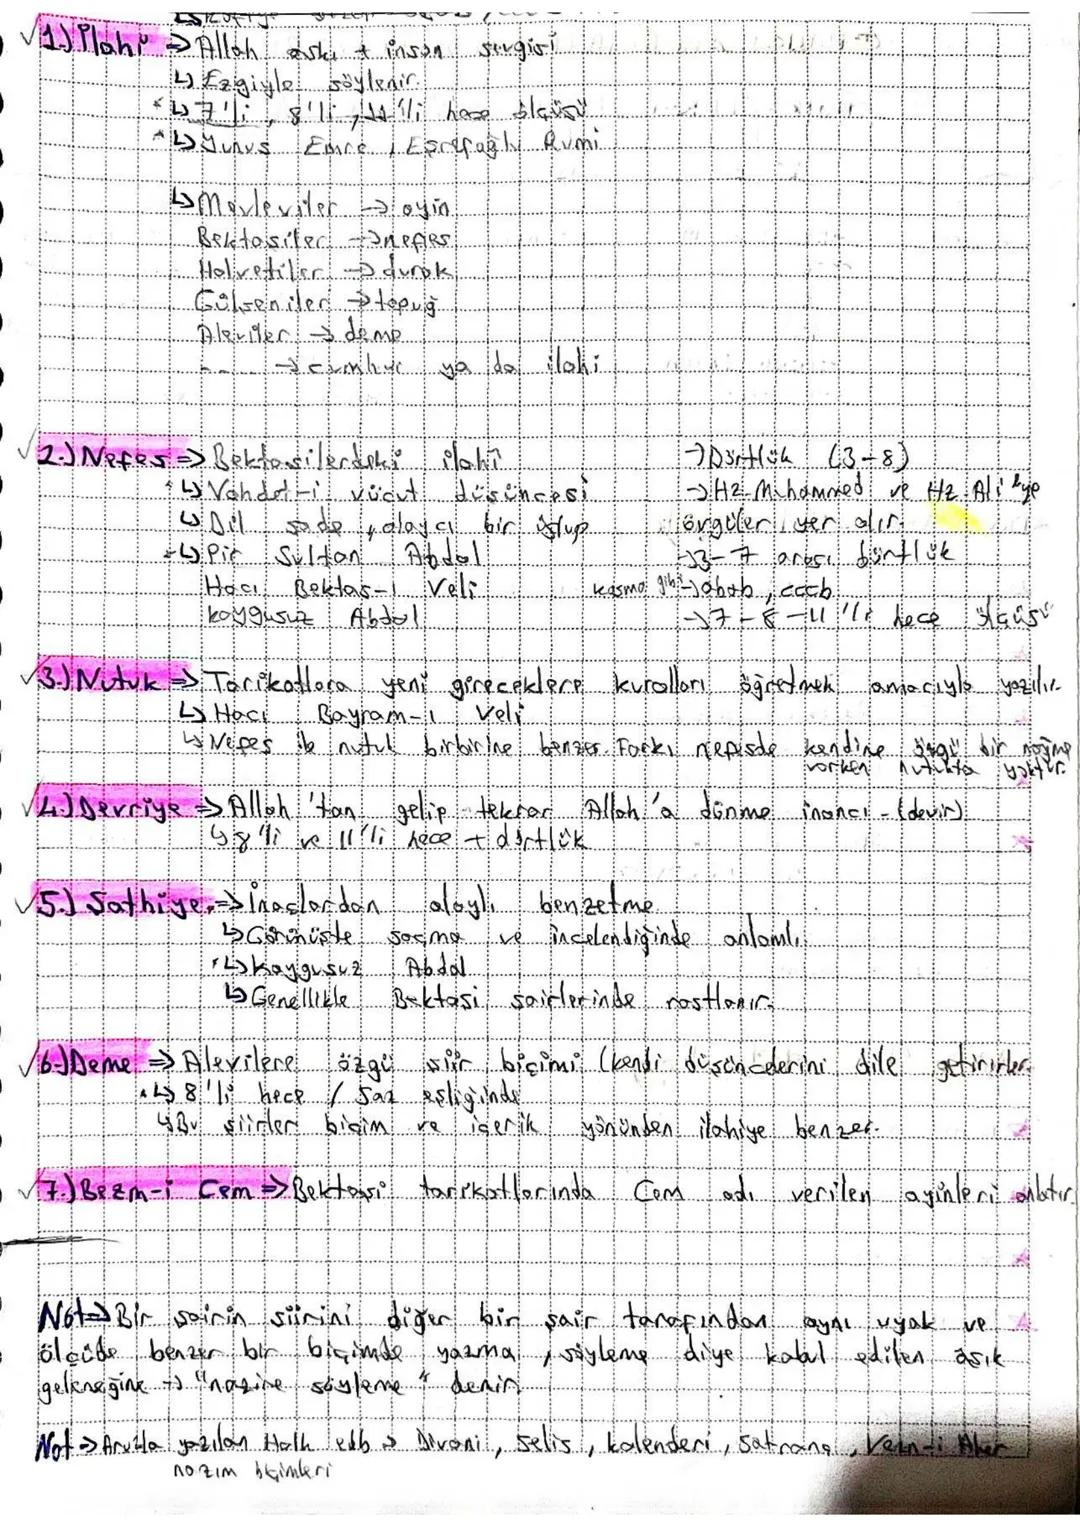 1.) İlahi => Allah aşkı + insan sevgisi
↳ Ezgiyle söylenir.
* ↳ 7'li, 8'li, 11'li hece ölçüsü
* ↳ Yunus Emre, Eşrefoğlu Rumi
↳ Mevleviler → ayin
Bektaşiler → nefes
Halvetiler → durak
Gülşeniler → tapuğ
Aleviler → deme
..... → cumhur ya da ilahi
2.) Nefes => Bektaşilerdeki ilahi → Dörtlük (3-8)
* ↳ Vahdet-i vücut düşüncesi → Hz. Muhammed ve Hz. Ali'ye
↳ Dil sade, alaycı bir üslup övgüler yer alır.
* ↳ Pir Sultan Abdal → 3-7 arası dörtlük
Hacı Bektaş-ı Veli koşma gibi → abab, cccb
Kaygusuz Abdal → 7-8-11'li hece ölçüsü
3.) Nutuk => Tarikatlara yeni gireceklere kuralları öğretmek amacıyla yazılır.
↳ Hacı Bayram-ı Veli
↳ Nefes ile nutuk birbirine benzer. Farkı nefeste kendine özgü bir nağme
varken nutukta yoktur.
4.) Devriye => Allah'tan gelip tekrar Allah'a dönme inancı - (devir)
↳ 8'li ve 11'li hece + dörtlük
5.) Şathiye => İnaçlardan alaylı benzetme
↳ Görünüşte saçma ve incelendiğinde anlamlı
* ↳ Kaygusuz Abdal
↳ Genellikle Bektaşi şairlerinde rastlanır.
6.) Deme => Alevilere özgü şiir biçimi (kendi düşüncelerini dile getirirler.
* ↳ 8'li hece / Saz eşliğinde
↳ Bu şiirler biçim ve içerik yönünden ilahiye benzer.
7.) Bezm-i Cem => Bektaşi tarikatlarında Cem adı verilen ayinleri anlatır.
Not => Bir şairin şiirini diğer bir şair tarafından aynı uyak ve
ölçüde benzer bir biçimde yazma, söyleme diye kabul edilen aşık
geleneğine → "nazire söyleme" denir.
Not => Aruzla yazılan Halk edb → Divani, selis, kalenderi, satranç, Vezn-i Aher
nazım biçimleri